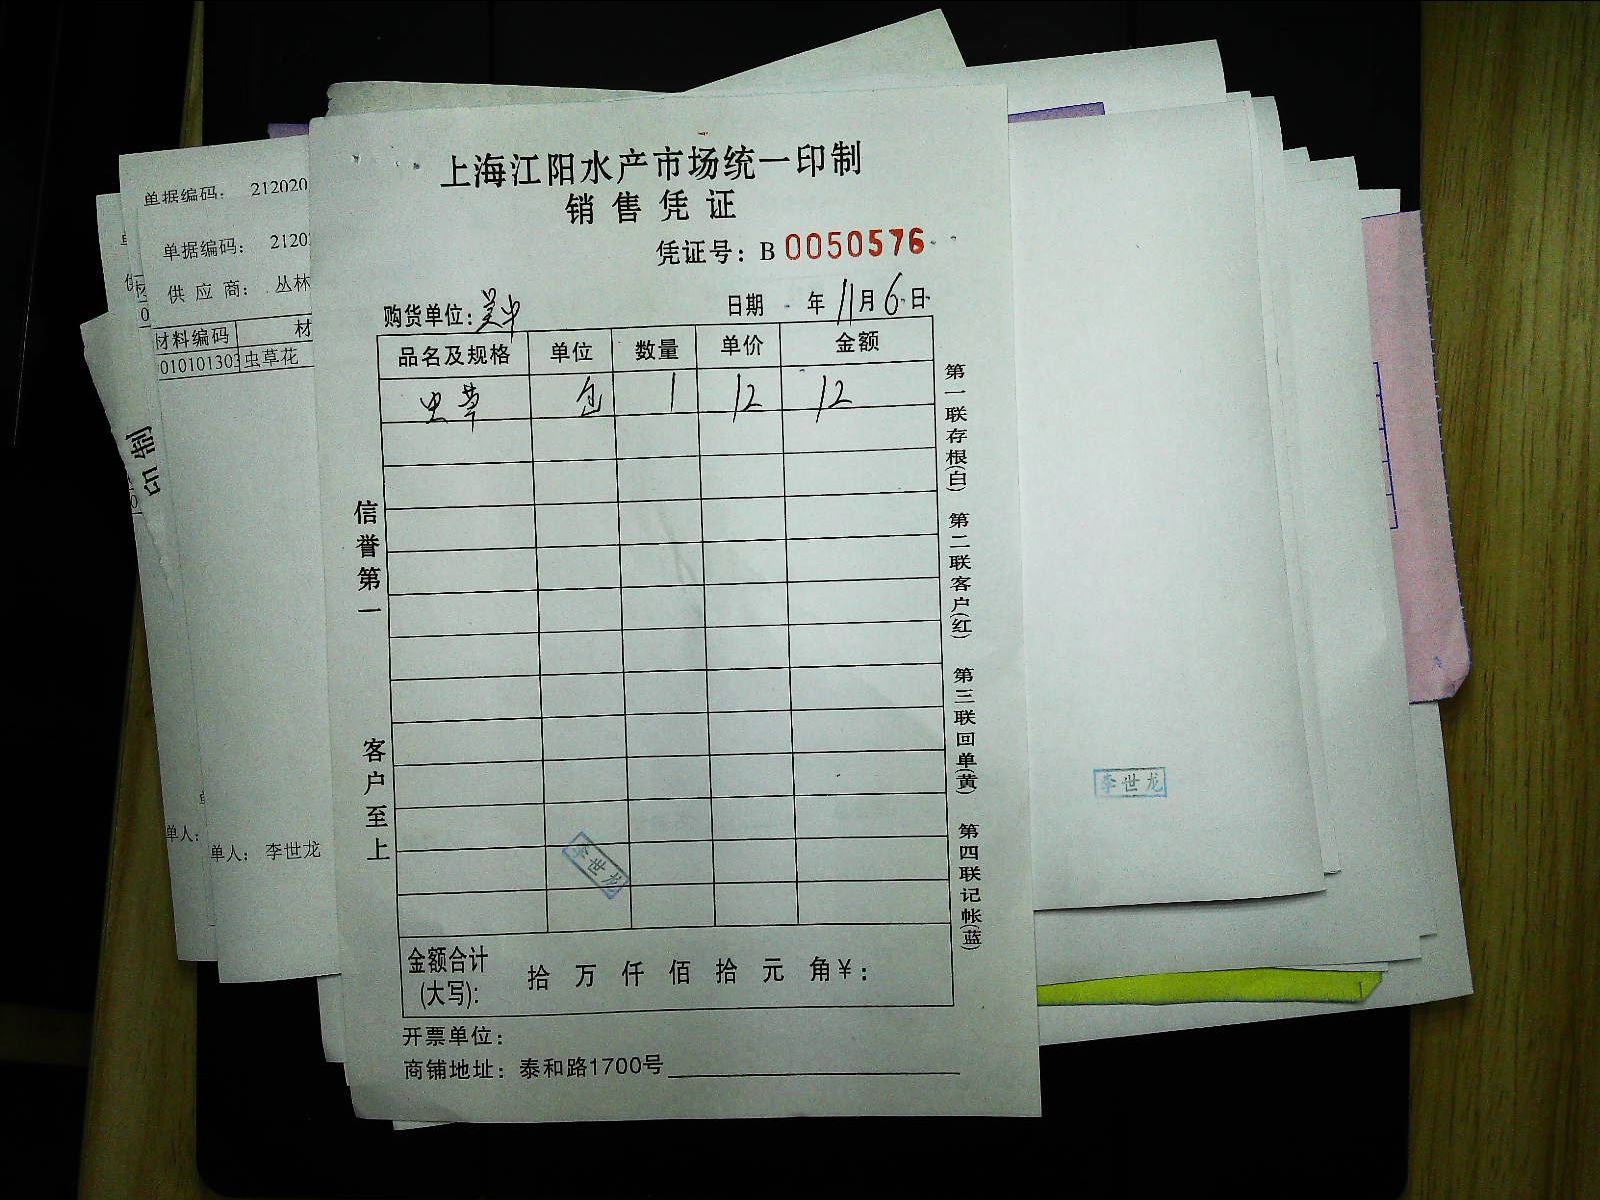 上海江阳水产市场统一印制
销售凭证
凭证号：B 0050576
购货单位：吴中
日期 年 11月 6日
品名及规格 单位 数量 单价 金额
虫草 包 1 12 12
信誉第一 客户至上
第一联存根(白) 第二联客户(红) 第三联回单(黄) 第四联记帐(蓝)
李世龙
金额合计(大写)： 拾 万 仟 佰 拾 元 角￥：
开票单位：
商铺地址：泰和路1700号
单据编码： 212020
单据编码： 2120
供应商： 丛林
材料编码 材
010101303 虫草花
印制
单人：
单人： 李世龙
李世龙